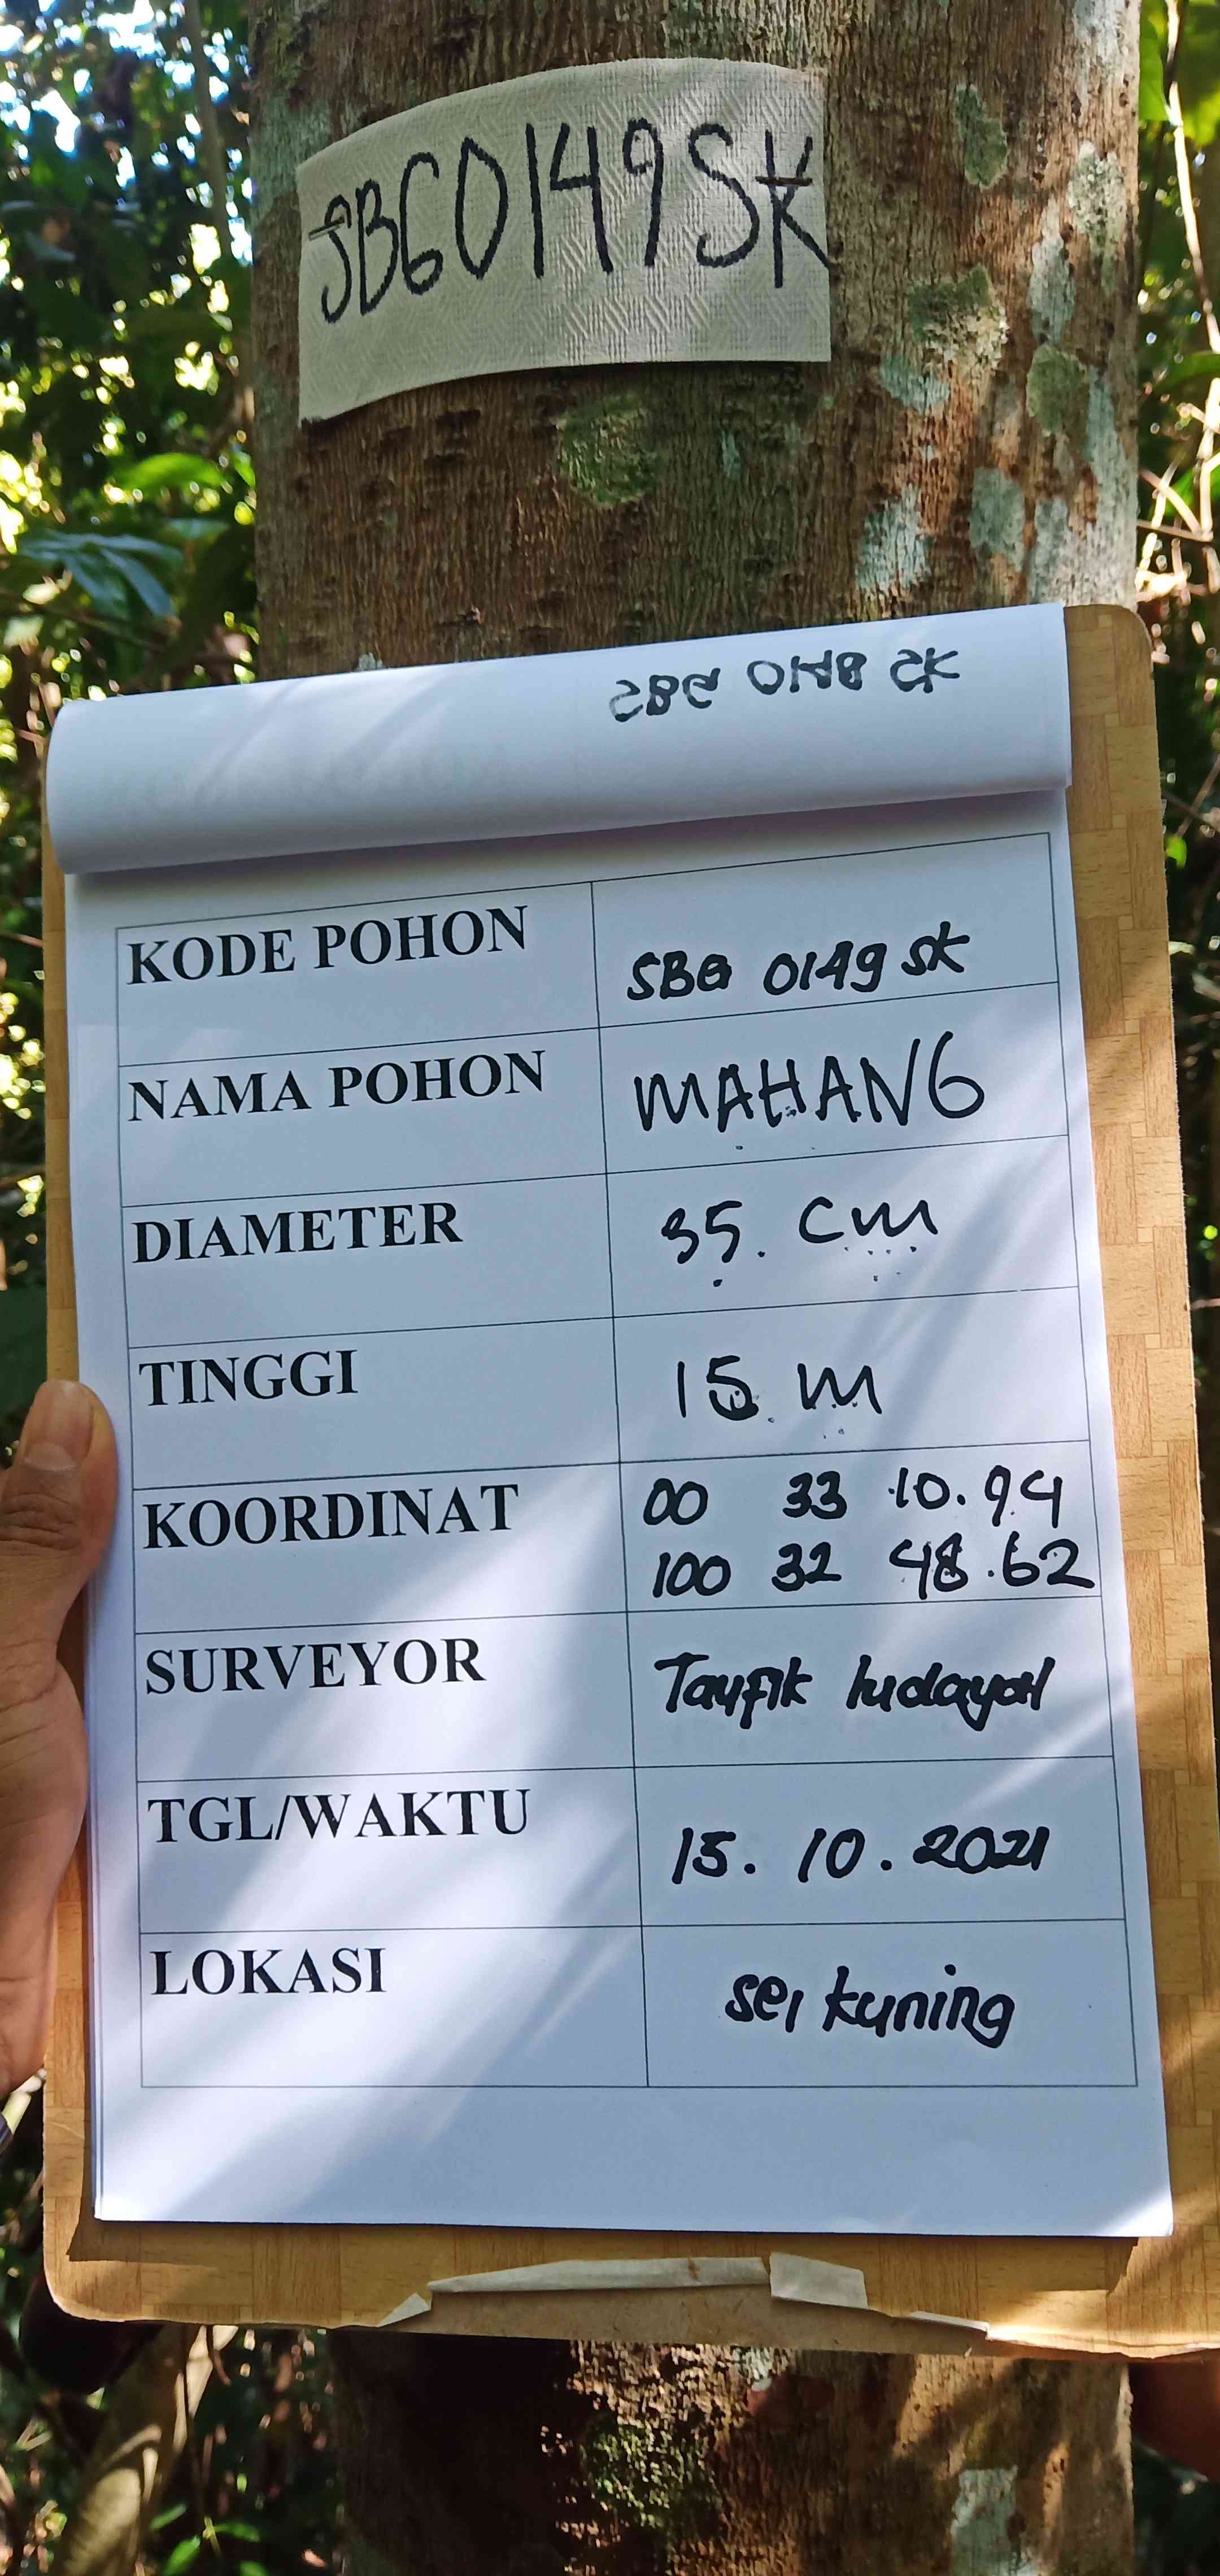 SBG0149SK
SBG 0148 SK
KODE POHON SBG 0149 SK
NAMA POHON MAHANG
DIAMETER 35. cm
TINGGI 15 m
KOORDINAT 00 33 10.94
100 32 48.62
SURVEYOR Taufik hidayat
TGL/WAKTU 15.10.2021
LOKASI sei kuning